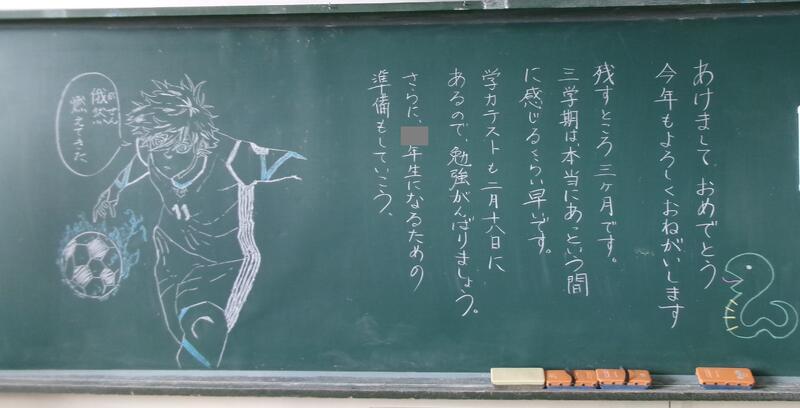 あけまして、おめでとう
今年もよろしくおねがいします
残すところ三ヶ月です。
三学期は、本当にあっという間
に感じるくらい早いです。
学力テストも二月十八日に
あるので、勉強がんばりましょう。
さらに、年生になるための
準備もしていこう、
俄然
がぜん
燃えてきた
11